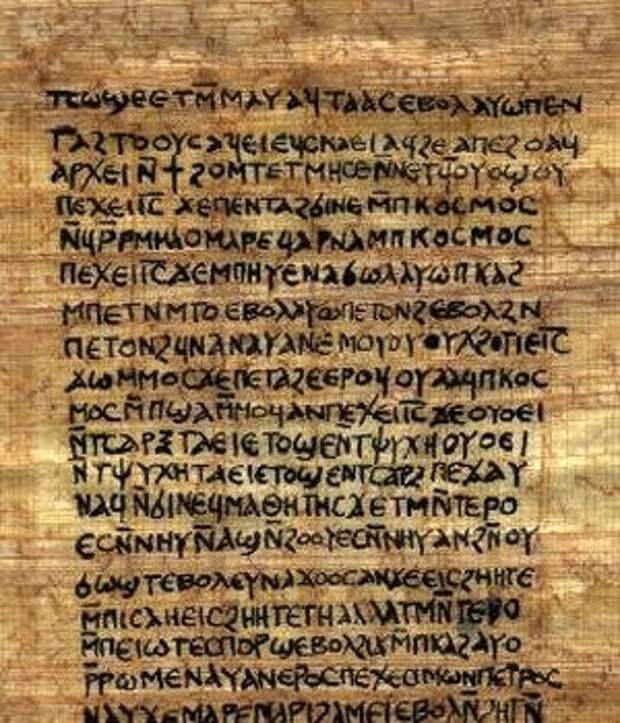 ⲡⲱϣⲉⲉⲧⲙ̄ⲙⲁⲩⲁϥⲧⲁⲁⲥⲉⲃⲟⲗⲁⲩⲱⲡⲉⲛ
ⲧⲁϩⲧⲟⲟⲩⲥⲁϥⲉⲓⲉϥⲥⲕⲁⲉⲓⲁϥϩⲉⲁⲡⲉϩⲟⲁϥ
ⲁⲣⲭⲉⲓⲛ̄ϯϩⲟⲙⲧⲉⲧⲙⲏⲥⲉⲛ̄ⲛⲉⲧϥⲟⲩⲟϣⲟⲩ
ⲡⲉϫⲉⲓ̅ⲥ̅ϫⲉⲡⲉⲛⲧⲁϩϭⲓⲛⲉⲙ̄ⲡⲕⲟⲥⲙⲟⲥ
ⲛ̄ϥⲣ̄ⲣⲙⲙⲁⲟⲙⲁⲣⲉϥⲁⲣⲛⲁⲙⲡⲕⲟⲥⲙⲟⲥ
ⲡⲉϫⲉⲓ̅ⲥ̅ϫⲉⲙⲡⲏⲩⲉⲛⲁϭⲱⲗⲁⲩⲱⲡⲕⲁϩ
ⲙⲡⲉⲧⲛⲙⲧⲟⲉⲃⲟⲗⲁⲩⲱⲡⲉⲧⲟⲛϩⲉⲃⲟⲗϩⲛ
ⲡⲉⲧⲟⲛϩϥⲛⲁⲛⲁⲩⲁⲛⲉⲙⲟⲩ
ϫⲱⲙⲙⲟⲥϫⲉⲡⲉⲧⲁϩⲉⲉⲣⲟϥⲟⲩⲁⲁϥⲡⲕⲟⲥ
ⲙⲟⲥⲙ̄ⲡϣⲁⲙ̄ⲙⲟϥⲁⲛⲡⲉϫⲉⲓ̅ⲥ̅ϫⲉⲟⲩⲟⲉⲓ
ⲛ̄ⲧⲥⲁⲣⲝⲧⲁⲉⲓⲉⲧⲟϣⲉⲛ̄ⲧⲯⲩⲭⲏⲟⲩⲟⲉⲓ
ⲛ̄ⲧⲯⲩⲭⲏⲧⲁⲉⲓⲉⲧⲟϣⲉⲛⲧⲥⲁⲣⲝⲡⲉϫⲁⲩ
ⲛⲁϥⲛ̄ϭⲓⲛⲉϥⲙⲁⲑⲏⲧⲏⲥϫⲉⲧⲙⲛ̄ⲧⲉⲣⲟ
ⲉⲥⲛ̄ⲛⲏⲩⲛ̄ⲁϣⲛ̄ϩⲟⲟⲩⲉⲥⲛ̄ⲛⲏⲩⲁⲛϩⲛ̄ⲟⲩ
ϭⲱϣⲧⲉⲃⲟⲗⲉⲩⲛⲁϫⲟⲟⲥⲁⲛϫⲉⲉⲓⲥϩⲏⲏⲧⲉ
ⲙ̄ⲡⲓⲥⲁⲏⲉⲓⲥϩⲏⲏⲧⲉⲧⲏⲁⲗⲗⲁⲧⲙⲛ̄ⲧⲉⲣⲟ
ⲙ̄ⲡⲉⲓⲱⲧⲉⲥⲡⲟⲣϣⲉⲃⲟⲗϩⲓϫⲙ̄ⲡⲕⲁϩⲁⲩⲱ
ⲣ̄ⲣⲱⲙⲉⲛⲁⲩⲁⲛⲉⲣⲟⲥⲡⲉϫⲉⲥⲓⲙⲱⲛⲡⲉⲧⲣⲟⲥ
ⲛⲁⲩϫⲉⲙⲁⲣⲉⲙⲁⲣⲓϩⲁⲙⲉⲓⲉⲃⲟⲗⲛ̄ϩⲏⲧⲛ̄